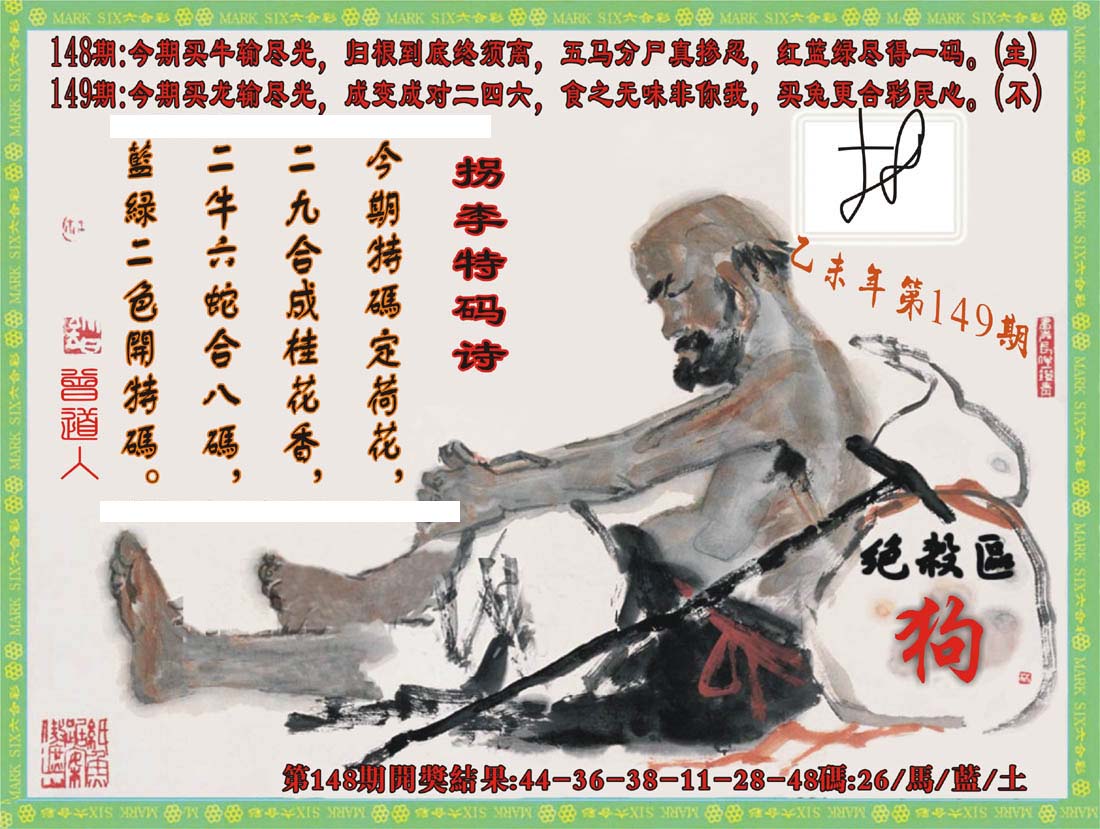 MARK SIX六合彩 MARK SIX六合彩 MARK SIX六合彩 MARK SIX六合彩 MARK SIX六合彩 MARK SIX六合彩
148期:今期买牛输尽光，归根到底终须离，五马分尸真掺忍，红蓝绿尽得一码。(主)
149期:今期买龙输尽光，成变成对二四六，食之无味非你我，买兔更合彩民心。(不)
拐李特码诗
今期特碼定荷花，
二九合成桂花香，
二牛六蛇合八碼，
藍綠二色開特碼。
乙未年第149期
曾道人
绝殺區
狗
第148期開獎結果:44-36-38-11-28-48碼:26/馬/藍/土